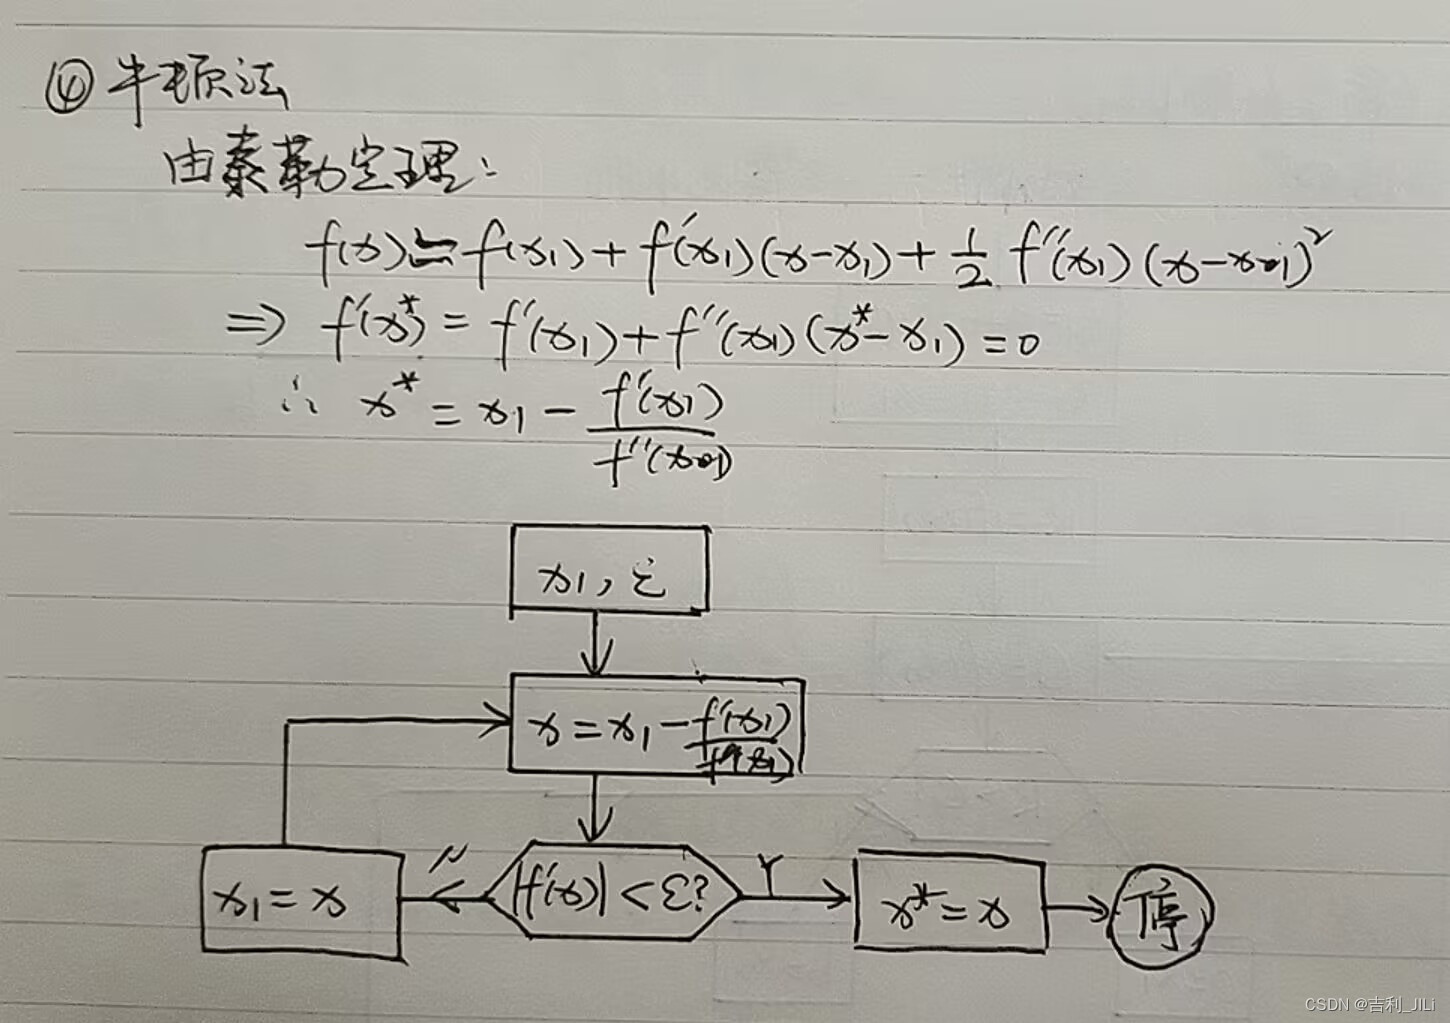 ④ 牛顿法
由泰勒定理:
f(x) ≌ f(x₁) + f'(x₁)(x-x₁) + 1/2 f''(x₁)(x-x₁)²
⇒ f'(x*) = f'(x₁) + f''(x₁)(x*-x₁) = 0
∴ x* = x₁ - f'(x₁)/f''(x₁)
x₁, ε
x = x₁ - f'(x₁)/f''(x₁)
x₁ = x
N
|f'(x)| < ε?
Y
x* = x
停
CSDN @吉利_JILi